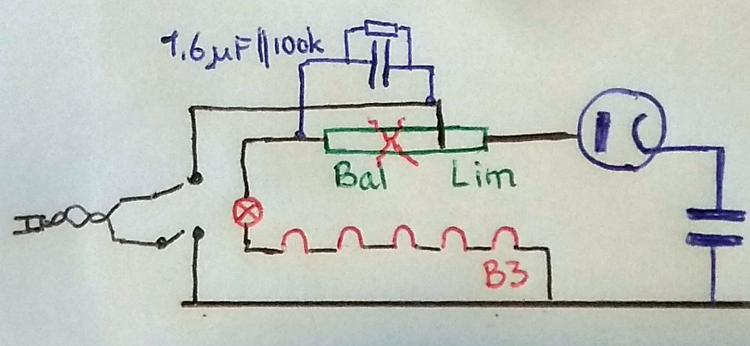 1.6µF||100k
Bal Lim
B3